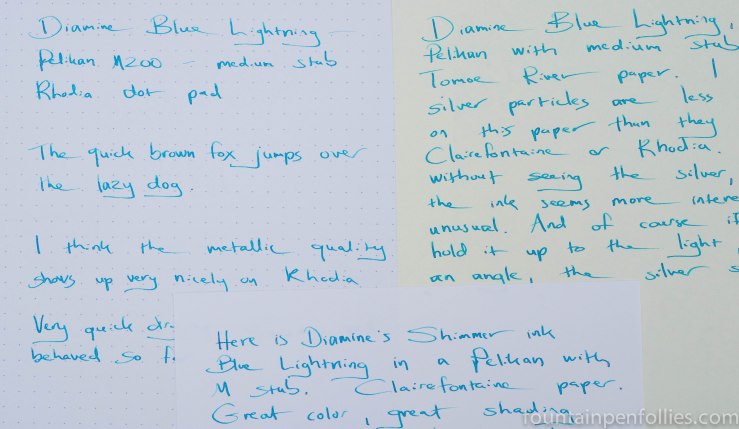 Diamine Blue Lightning
Pelikan M200 - medium stub
Rhodia dot pad
The quick brown fox jumps over
the lazy dog.
I think the metallic quality
shows up very nicely on Rhodia
Very quick
behaved so
Diamine Blue Lightning,
Pelikan with medium stub
Tomoe River paper. I
silver particles are less
on this paper than they
Clairefontaine or Rhodia.
without seeing the silver,
the ink seems more
unusual. And of course if
hold it up to the light
an angle, the silver
Here is Diamine's Shimmer ink
Blue Lightning in a Pelikan with
M stub. Clairefontaine paper.
Great color, great shading
fountainpenfollies.com